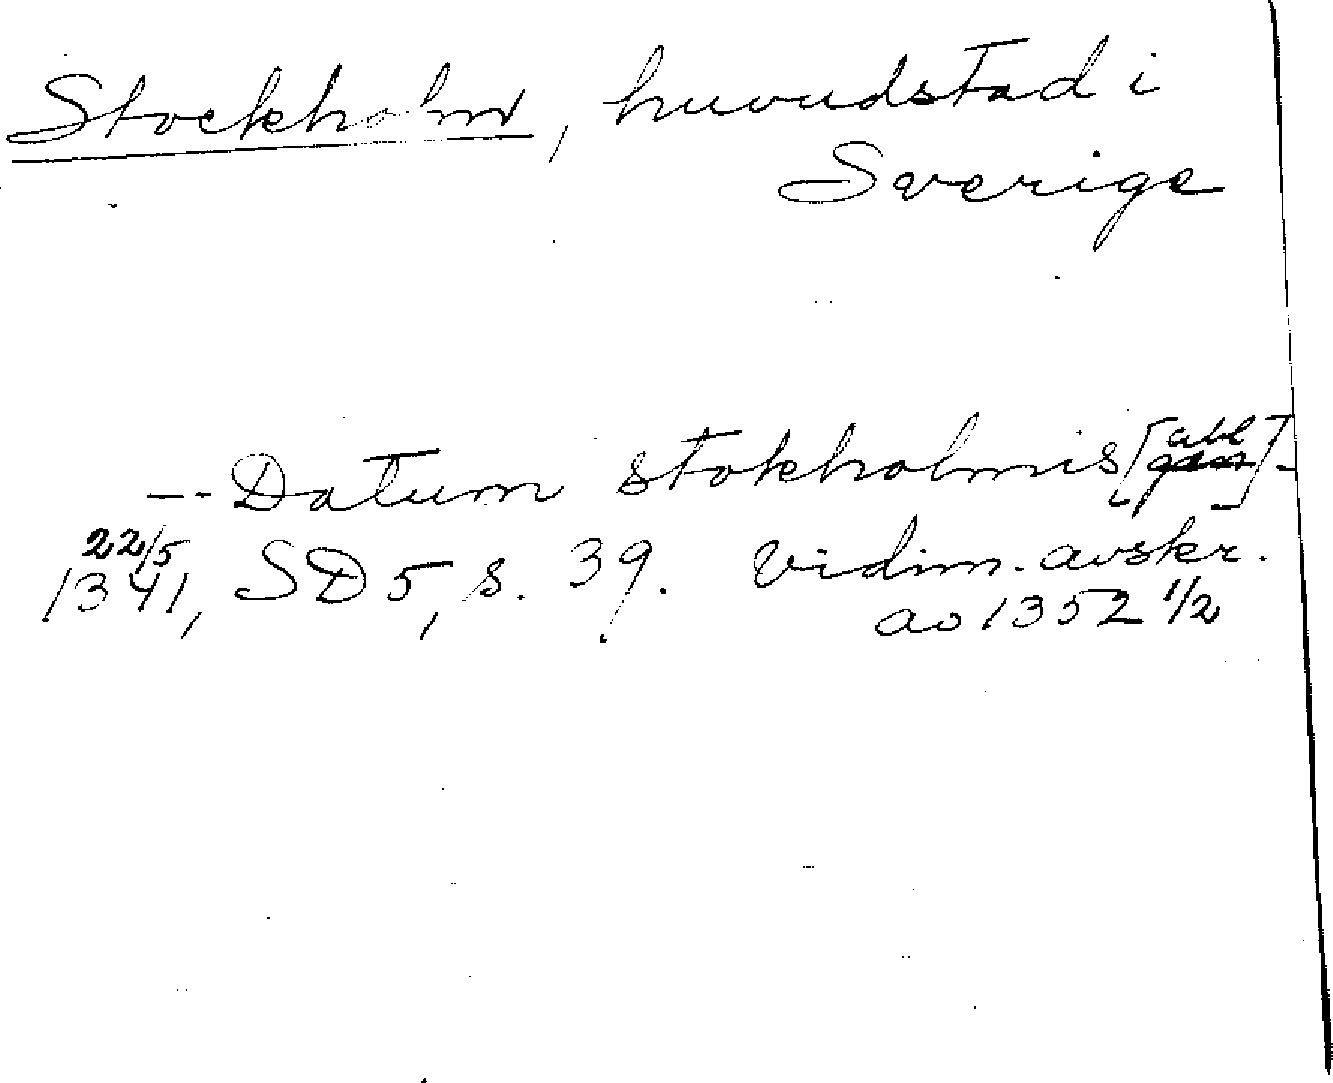 Stockholm, huvudstad i
Sverige
-- Datum stokholmis [abl]-
22/5
1341, SD 5, s. 39. Vidim. avskr.
ao 1352 1/2